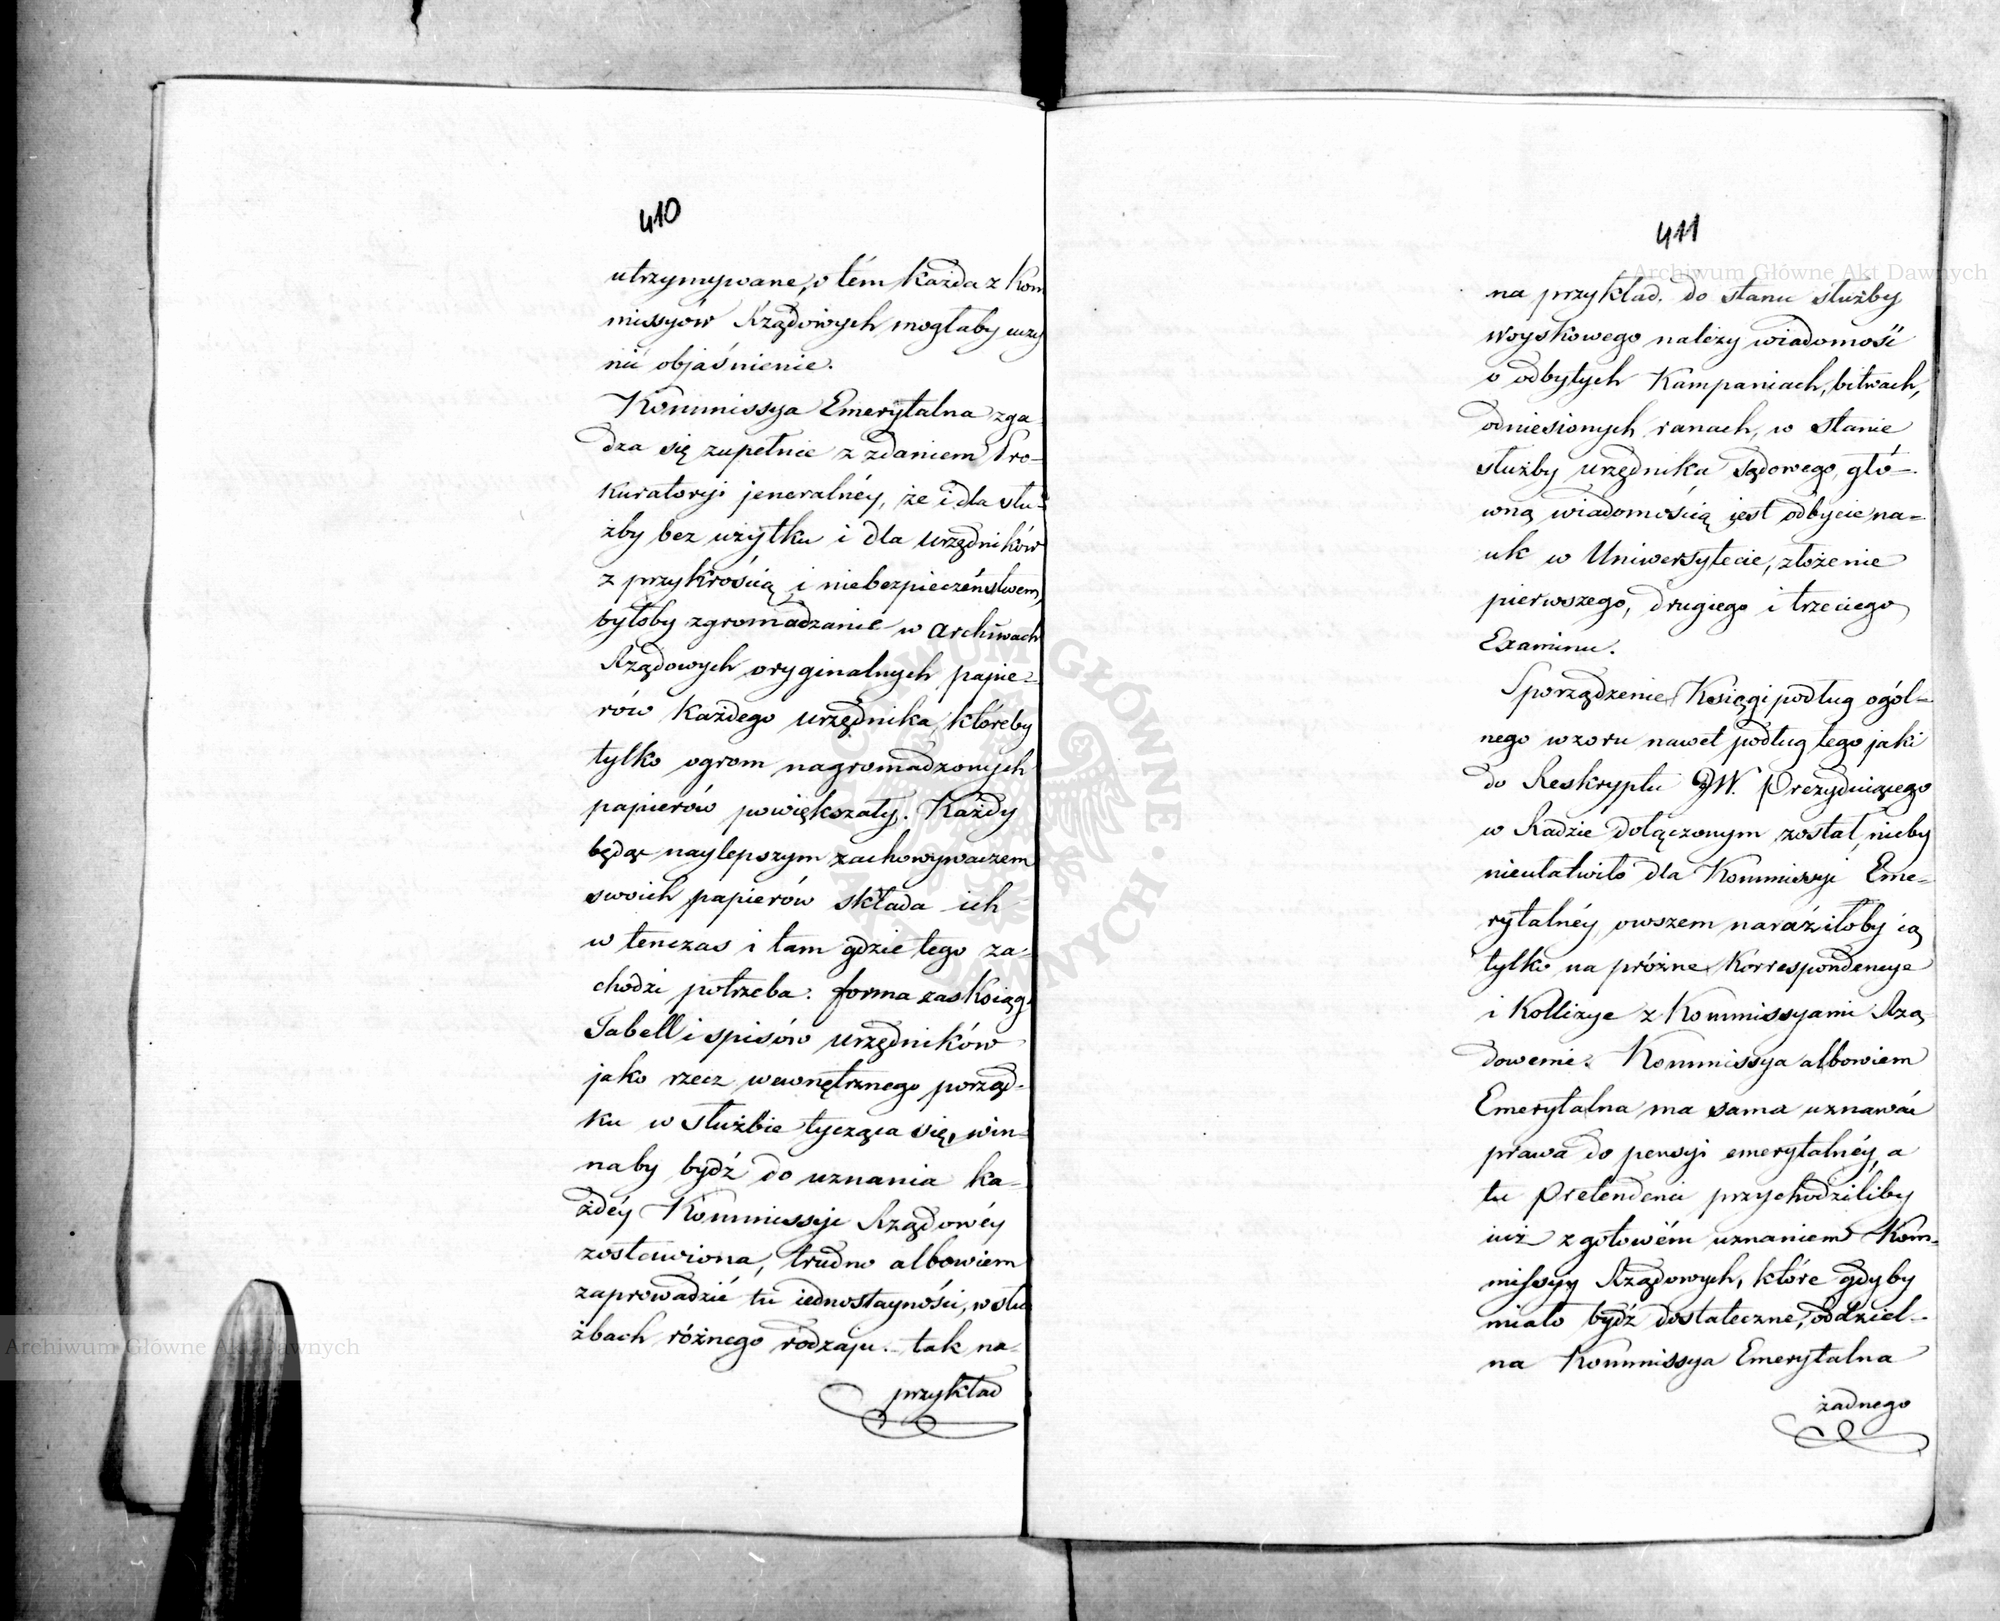 410
utrzymywane, o tém każda z Kom
missyów Rządowych mogłaby uczy
nić objaśnienie.
Kommissya Emerytalna zga-
dza się zupełnie z zdaniem Pro-
kuratoryi jeneralnéy, że i dla słu-
żby bez użytku i dla urzędników
z przykrością i niebezpieczeństwem,
byłoby zgromadzanie w archiwach
Rządowych oryginalnych papie-
rów każdego urzędnika, któreby
tylko ogrom nagromadzonych
papierów powiększały. Każdy
będąc naylepszym zachowywaczem
swoich papierów składa ich
w tenczas i tam gdzie tego za-
chodzi potrzeba. forma zas Ksiąg
Tabell i spisów urzędników
jako rzecz wewnętrznego porząd-
ku w służbie tycząca się, win-
naby bydź do uznania ka-
żdéy Kommissyi Rządowéy
zostawiona, trudno albowiem
zaprowadzić tu iednostayności, w słu
żbach różnego rodzaju. tak na
przykład
411
na przykład. do stanu służby
woyskowego należy wiadomość
o odbytych Kampaniach, bitwach,
odniesionych ranach, w stanie
służby urzędnika sądowego, głó-
wną wiadomością jest odbycie na-
uk w Uniwersytecie, złożenie
pierwszego, drugiego i trzeciego
Examinu.
Sporządzenie Księgi podług ogól-
nego wzoru nawet podług tego jaki
do Reskryptu JW. Prezydującego
w Radzie dołączonym został, nicby
nieułatwiło dla Kommissyi Eme-
rytalnéy, owszem naraziłoby ią
tylko na próżne Korrespondencye
i Kollizye z Kommissyami Rzą
dowemi. Kommissya albowiem
Emerytalna ma sama uznawać
prawa do pensyi emerytalnéy, a
tu Pretendenci przychodziliby
iuż z gotowém uznaniem Kom-
missyy Rządowych, które gdyby
miało bydź dostateczne, oddziel-
na Kommissya Emerytalna
żadnego
Archiwum Główne Akt Dawnych
Archiwum Główne Akt Dawnych
ARCHIWUM GŁÓWNE AKT DAWNYCH